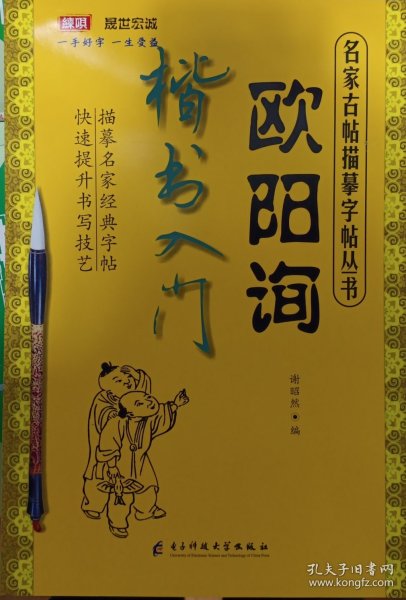 練唄 晟世宏诚
一手好字 一生受益
名家古帖描摹字帖丛书
欧阳询
楷书入门
描摹名家经典字帖
快速提升书写技艺
谢昭然·编
电子科技大学出版社
University of Electronic Science and Technology of China Press
孔夫子旧书网
www.kongfz.com